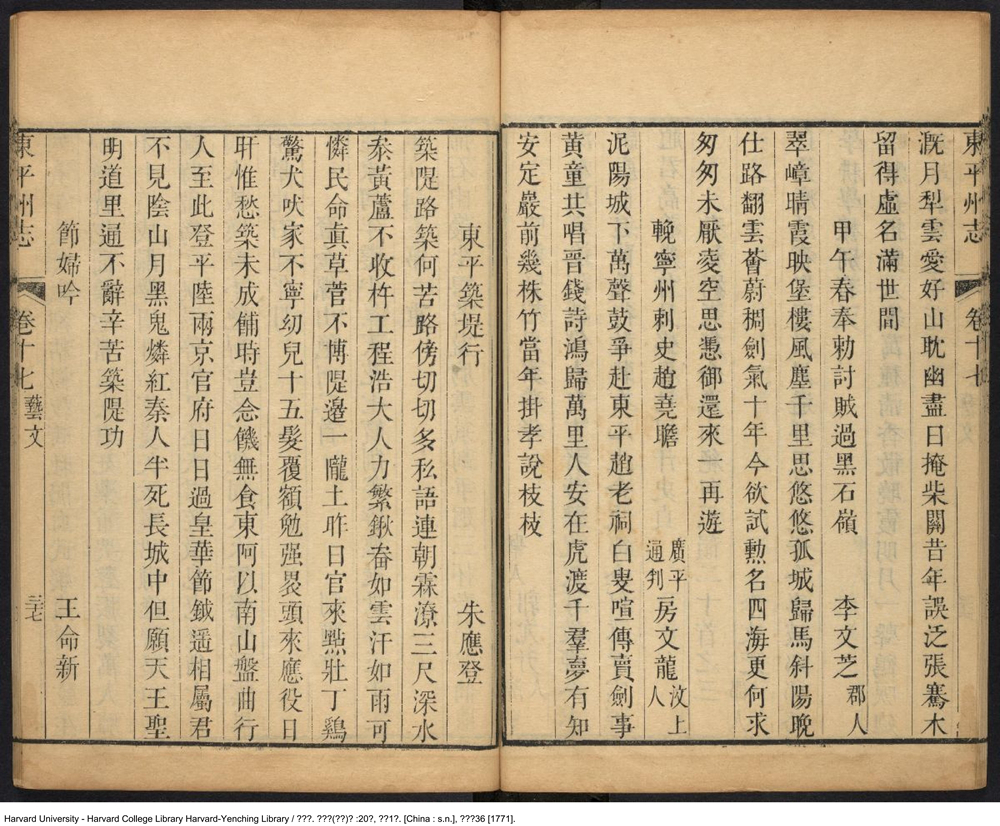 東平州志 卷十七
溉月犁雲愛好山耽幽盡日掩柴關昔年誤泛張騫木
留得虛名滿世間
甲午春奉勅討賊過黑石嶺 李文芝 郡人
翠嶂晴霞映堡樓風塵千里思悠悠孤城歸馬斜陽晚
仕路翻雲薈蔚稠劍氣十年今欲試勲名四海更何求
匆匆未厭凌空思憑御還來一再遊
輓寧州刺史趙堯瞻 廣平通判 房文龍 汶上人
泥陽城下萬聲鼓爭赴東平趙老祠白叟喧傳賣劍事
黃童共唱晉錢詩鴻歸萬里人安在虎渡千羣夢有知
安定巖前幾株竹當年掛孝說枝枝
東平築堤行 朱應登
築隄路築何苦路傍切切多私語連朝霖潦三尺深水
泰黃蘆不收杵工程浩大人力繁鍬畚如雲汗如雨可
憐民命眞草菅不博隄邊一隴土昨日官來點壯丁鷄
驚犬吠家不寧幼兒十五髮覆額勉强裹頭來應役日
旰惟愁築未成餔時豈念饑無食東阿以南山盤曲行
人至此登平陸兩京官府日日過皇華節鉞遥相屬君
不見陰山月黑鬼燐紅秦人半死長城中但願天王聖
明道里通不辭辛苦築隄功
節婦吟 王命新
東平州志 卷十七 藝文 三七
Harvard University - Harvard College Library Harvard-Yenching Library / ???. ???(??)? :20?, ??1?. [China : s.n.], ???36 [1771].